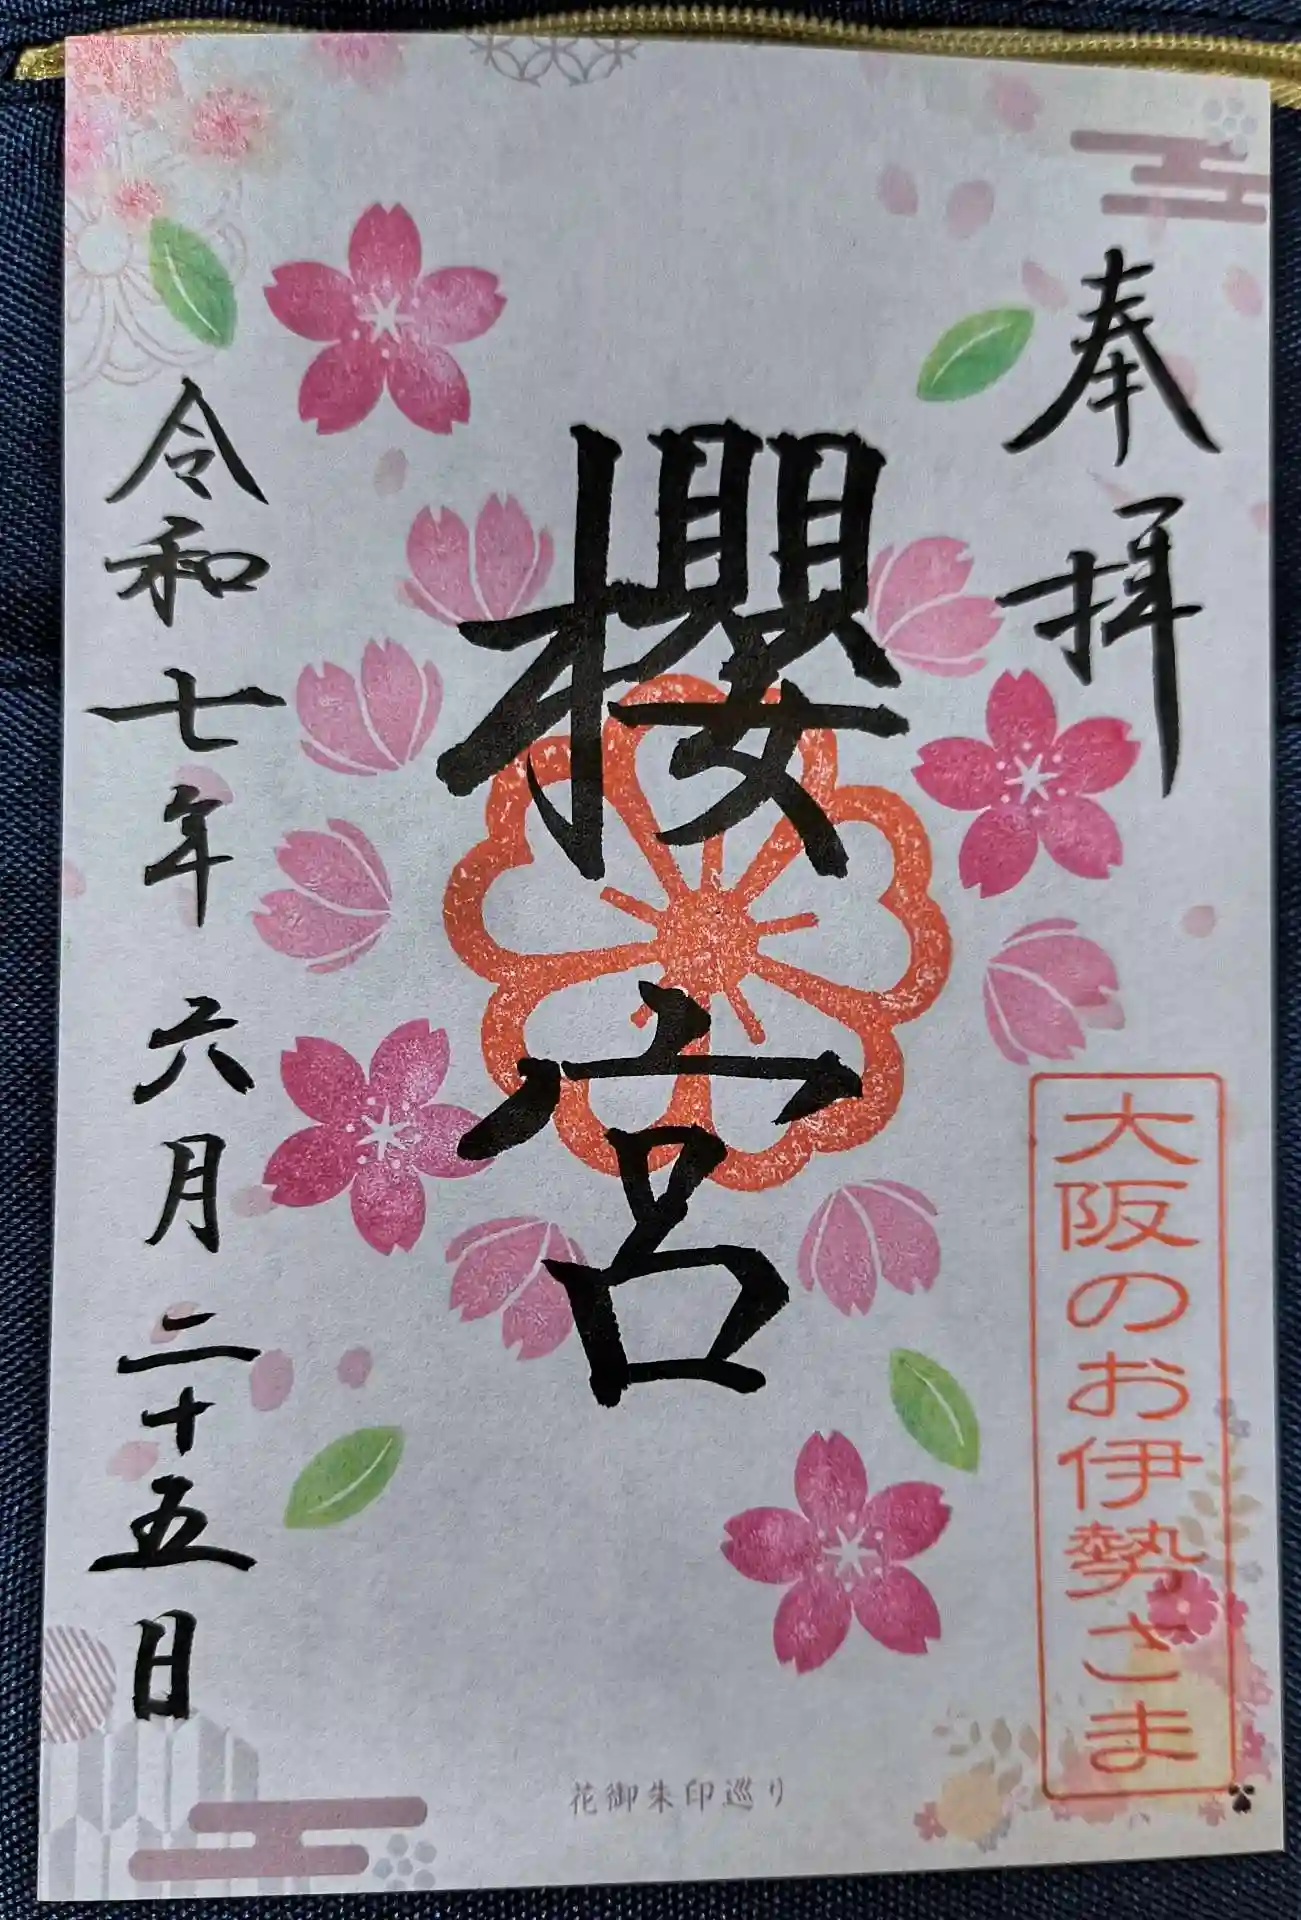 奉拝
大阪のお伊勢さま
櫻宮
令和七年六月二十五日
花御朱印巡り